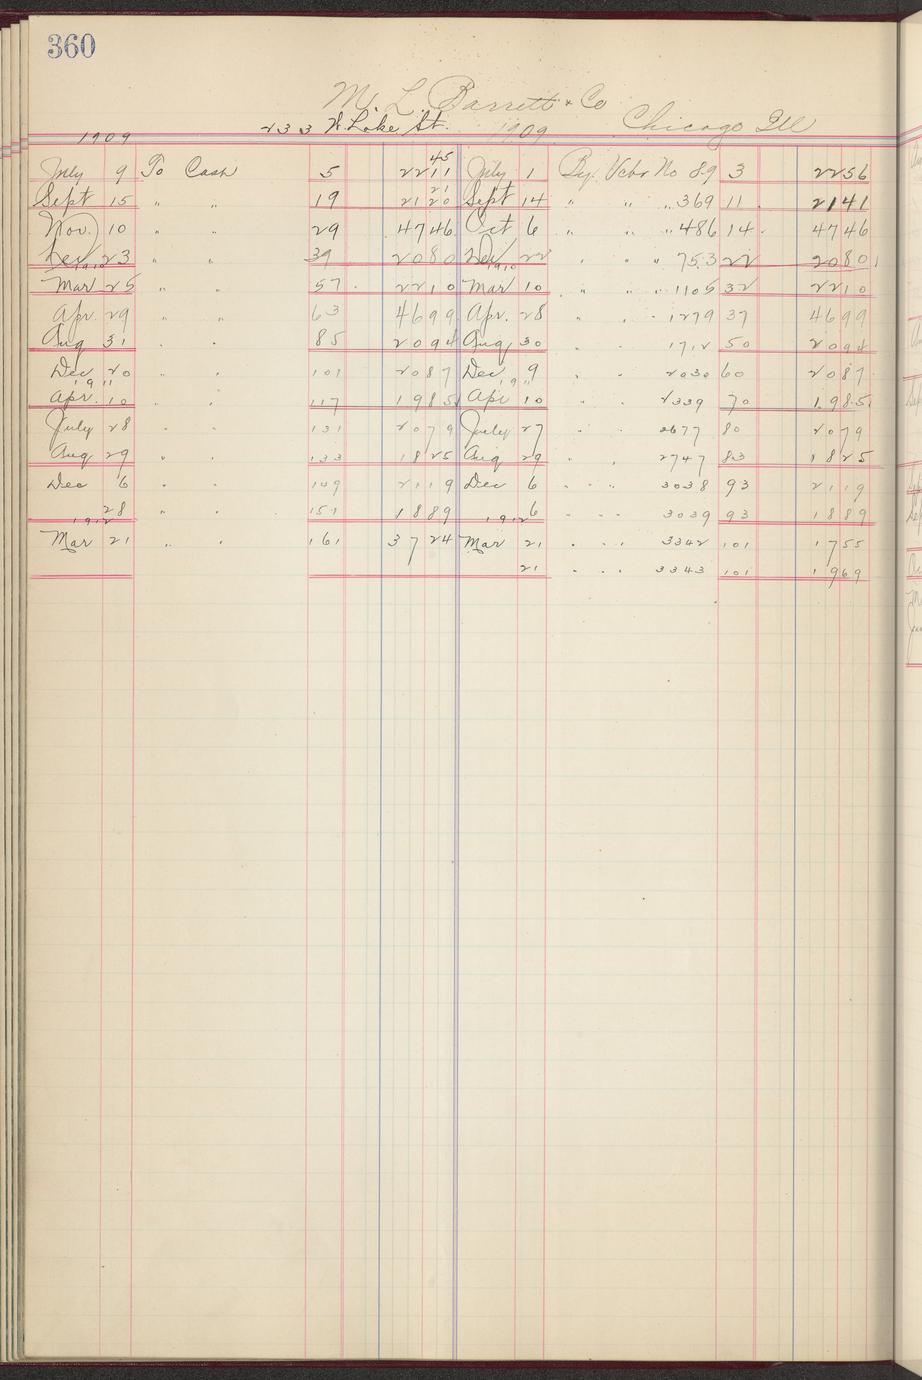 360
M. L. Barrett & Co
233 W. Lake St. Chicago Ill
1909 1909
45
July 9 To Cash 5 2211 July 1 By Vchr No 89 3 2256
21
Sept 15 " " 19 2120 Sept 14 " " " 369 11 2141
Nov. 10 " " 29 4746 Oct 6 " " " 486 14 4746
Dec 23 " " 39 2080 Dec 22 " " " 753 22 2080
1910 1910
Mar 25 " " 57 2210 Mar 10 " " " 1105 32 2210
Apr. 29 " " 63 4699 Apr. 28 " " " 1279 37 4699
Aug 31 " " 85 2094 Aug 30 " " 1712 50 2094
Dec 20 " " 101 2087 Dec 9 " " 2030 60 2087
1911 1911
Apr. 10 " " 117 1985 Apr 10 " " 2339 70 1985
July 28 " " 131 2079 July 27 " " 2677 80 2079
Aug 29 " " 133 1825 Aug 29 " " 2747 83 1825
Dec 6 " " 149 2119 Dec 6 " " " 3038 93 2119
28 " " 151 1889 6 " " " 3039 93 1889
1912 1912
Mar 21 " " 161 3724 Mar 21 " " " 3342 101 1755
21 " " " 3343 101 1969